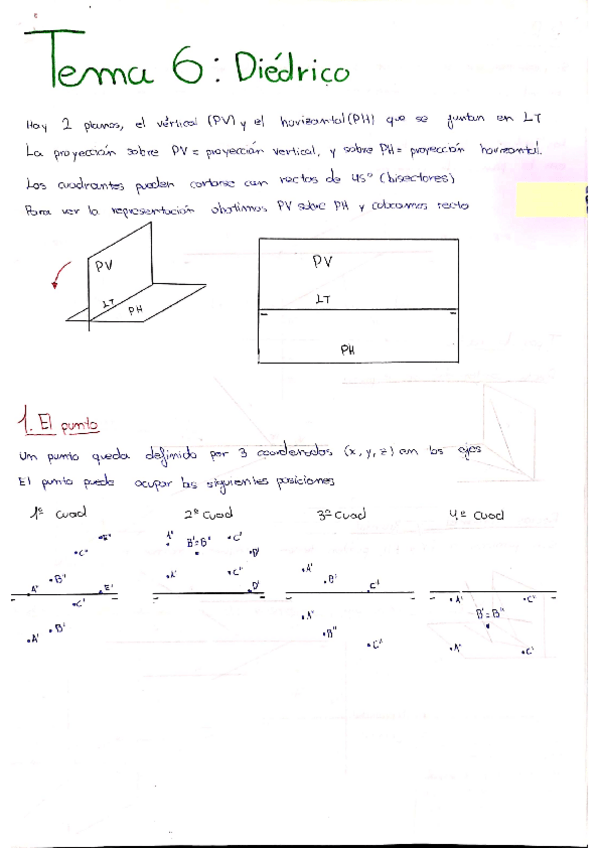 Tema 6: Diédrico
Hay 2 planos, el vertical (PV) y el horizontal (PH) que se juntan en LT
La proyección sobre PV = proyección vertical, y sobre PH = proyección horizontal.
Los cuadrantes pueden cortarse con rectas de 45° (bisectores)
Para ver la representación abatimos PV sobre PH y colocamos recto
PV
LT
PH
PV
LT
PH
1. El punto
Un punto queda definido por 3 coordenadas (x, y, z) con los ejes
El punto puede ocupar las siguientes posiciones
1º cuad 2º cuad 3º cuad 4º cuad
E" C" B" A" E' C' B' A'
A" B'=B" C" D' A' C" D'
A' B' C' A" B" C"
A" C" B'=B" A' C'